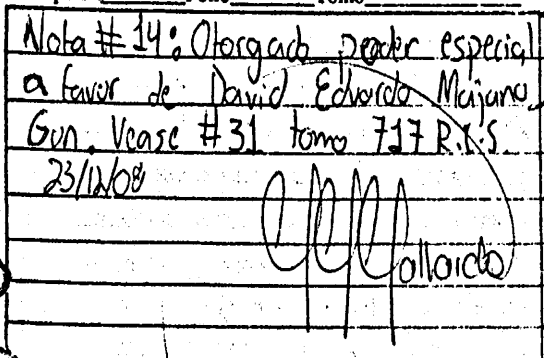 Nota # 14: Otorgado poder especial
a favor de David Eduardo Majano
Gun. Vease #31 tomo 717 R.C.S.
23/12/08